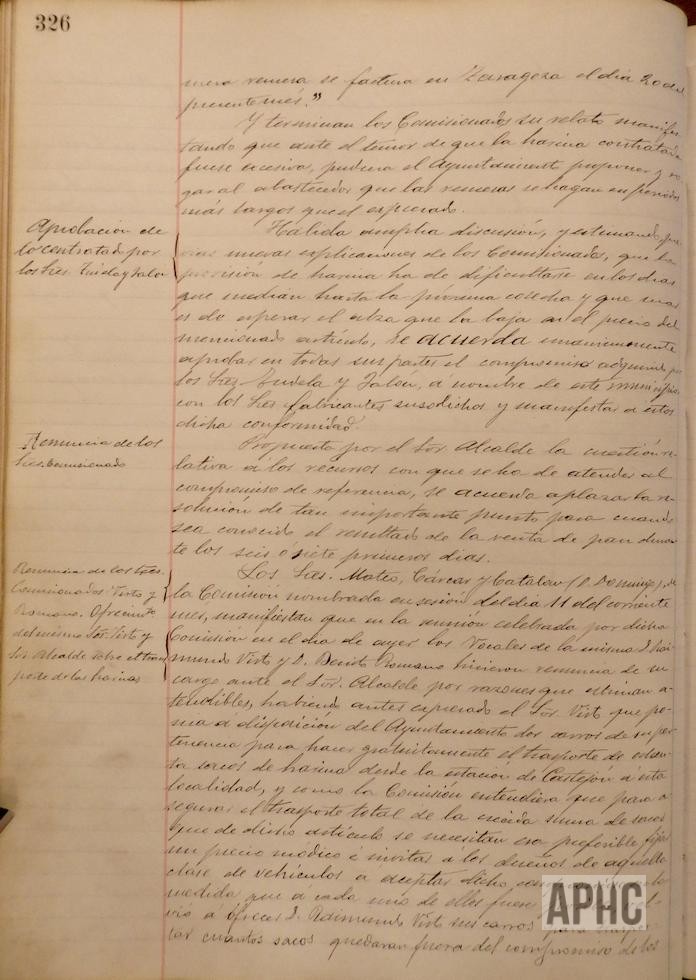 326
mera remesa se factura en Zaragoza el dia 20 del
presente mes."
Y terminan los Comisionados su relato manifes-
tando que ante el temor de que la harina contratada
fuese excesiva, pudiera el Ayuntamiento proponer y ro-
gar al abastecedor que las remesas se hagan en periodos
más largos que el expresado.
Aprobación de
lo contratado por
los Sres. Tudela y Jalón
Habida amplia discusión, y estimando, pre-
vias nuevas explicaciones de los Comisionados, que la
provisión de harina ha de dificultarse en los dias
que median hasta la próxima cosecha y que mas
es de esperar el alza que la baja en el precio del
mencionado artículo, se acuerda unanimemente
aprobar en todas sus partes el compromiso adquirido por
los Sres. Tudela y Jalón, á nombre de este municipio,
con los Sres. fabricantes susodichos y manifestar a estos
dicha conformidad.
Renuncia de los
Sres. Comisionado
Propuesta por el Sor Alcalde la cuestión re-
lativa a los recursos con que se ha de atender al
compromiso de referencia, se acuerda aplazar la re-
solución de tan importante punto para cuando
sea conocido el resultado de la venta de pan duran-
te los seis ó siete primeros dias.
Renuncia de los Sres.
Comisionados Virto y
Romano. Ofrecimto
del mismo Sor. Virto y
Sr. Alcalde sobre el trans
porte de las harinas
Los Sres. Mateo, Cárcar y Catalán (D. Domingo), de
la Comisión nombrada en sesión del dia 11 del corriente
mes, manifiestan que en la reunión celebrada por dicha
Comisión en el dia de ayer los Vocales de la misma D. Rai-
mundo Virto y D. Benito Romano hicieron renuncia de su
cargo ante el Sor. Alcalde por razones que estiman a-
tendibles, habiendo antes expresado el Sor Virto que po-
nia a disposición del Ayuntamiento dos carros de su per-
tenencia para hacer gratuitamente el trasporte de
sacos de harina desde la estación de Castejón á esta
localidad, y como la Comisión entendiera que para a-
segurar el trasporte total de la crecida suma de sacos
que de dicho artículo se necesitan era preferible fijar
un precio módico é invitar á los dueños de aquella
clase de vehículos a aceptar dicho
medida que á cada uno de ellos fuese
vió a ofrecer D. Raimundo Virto sus carros para traspor-
tar cuantos sacos quedaran fuera del compromiso de los
APHC